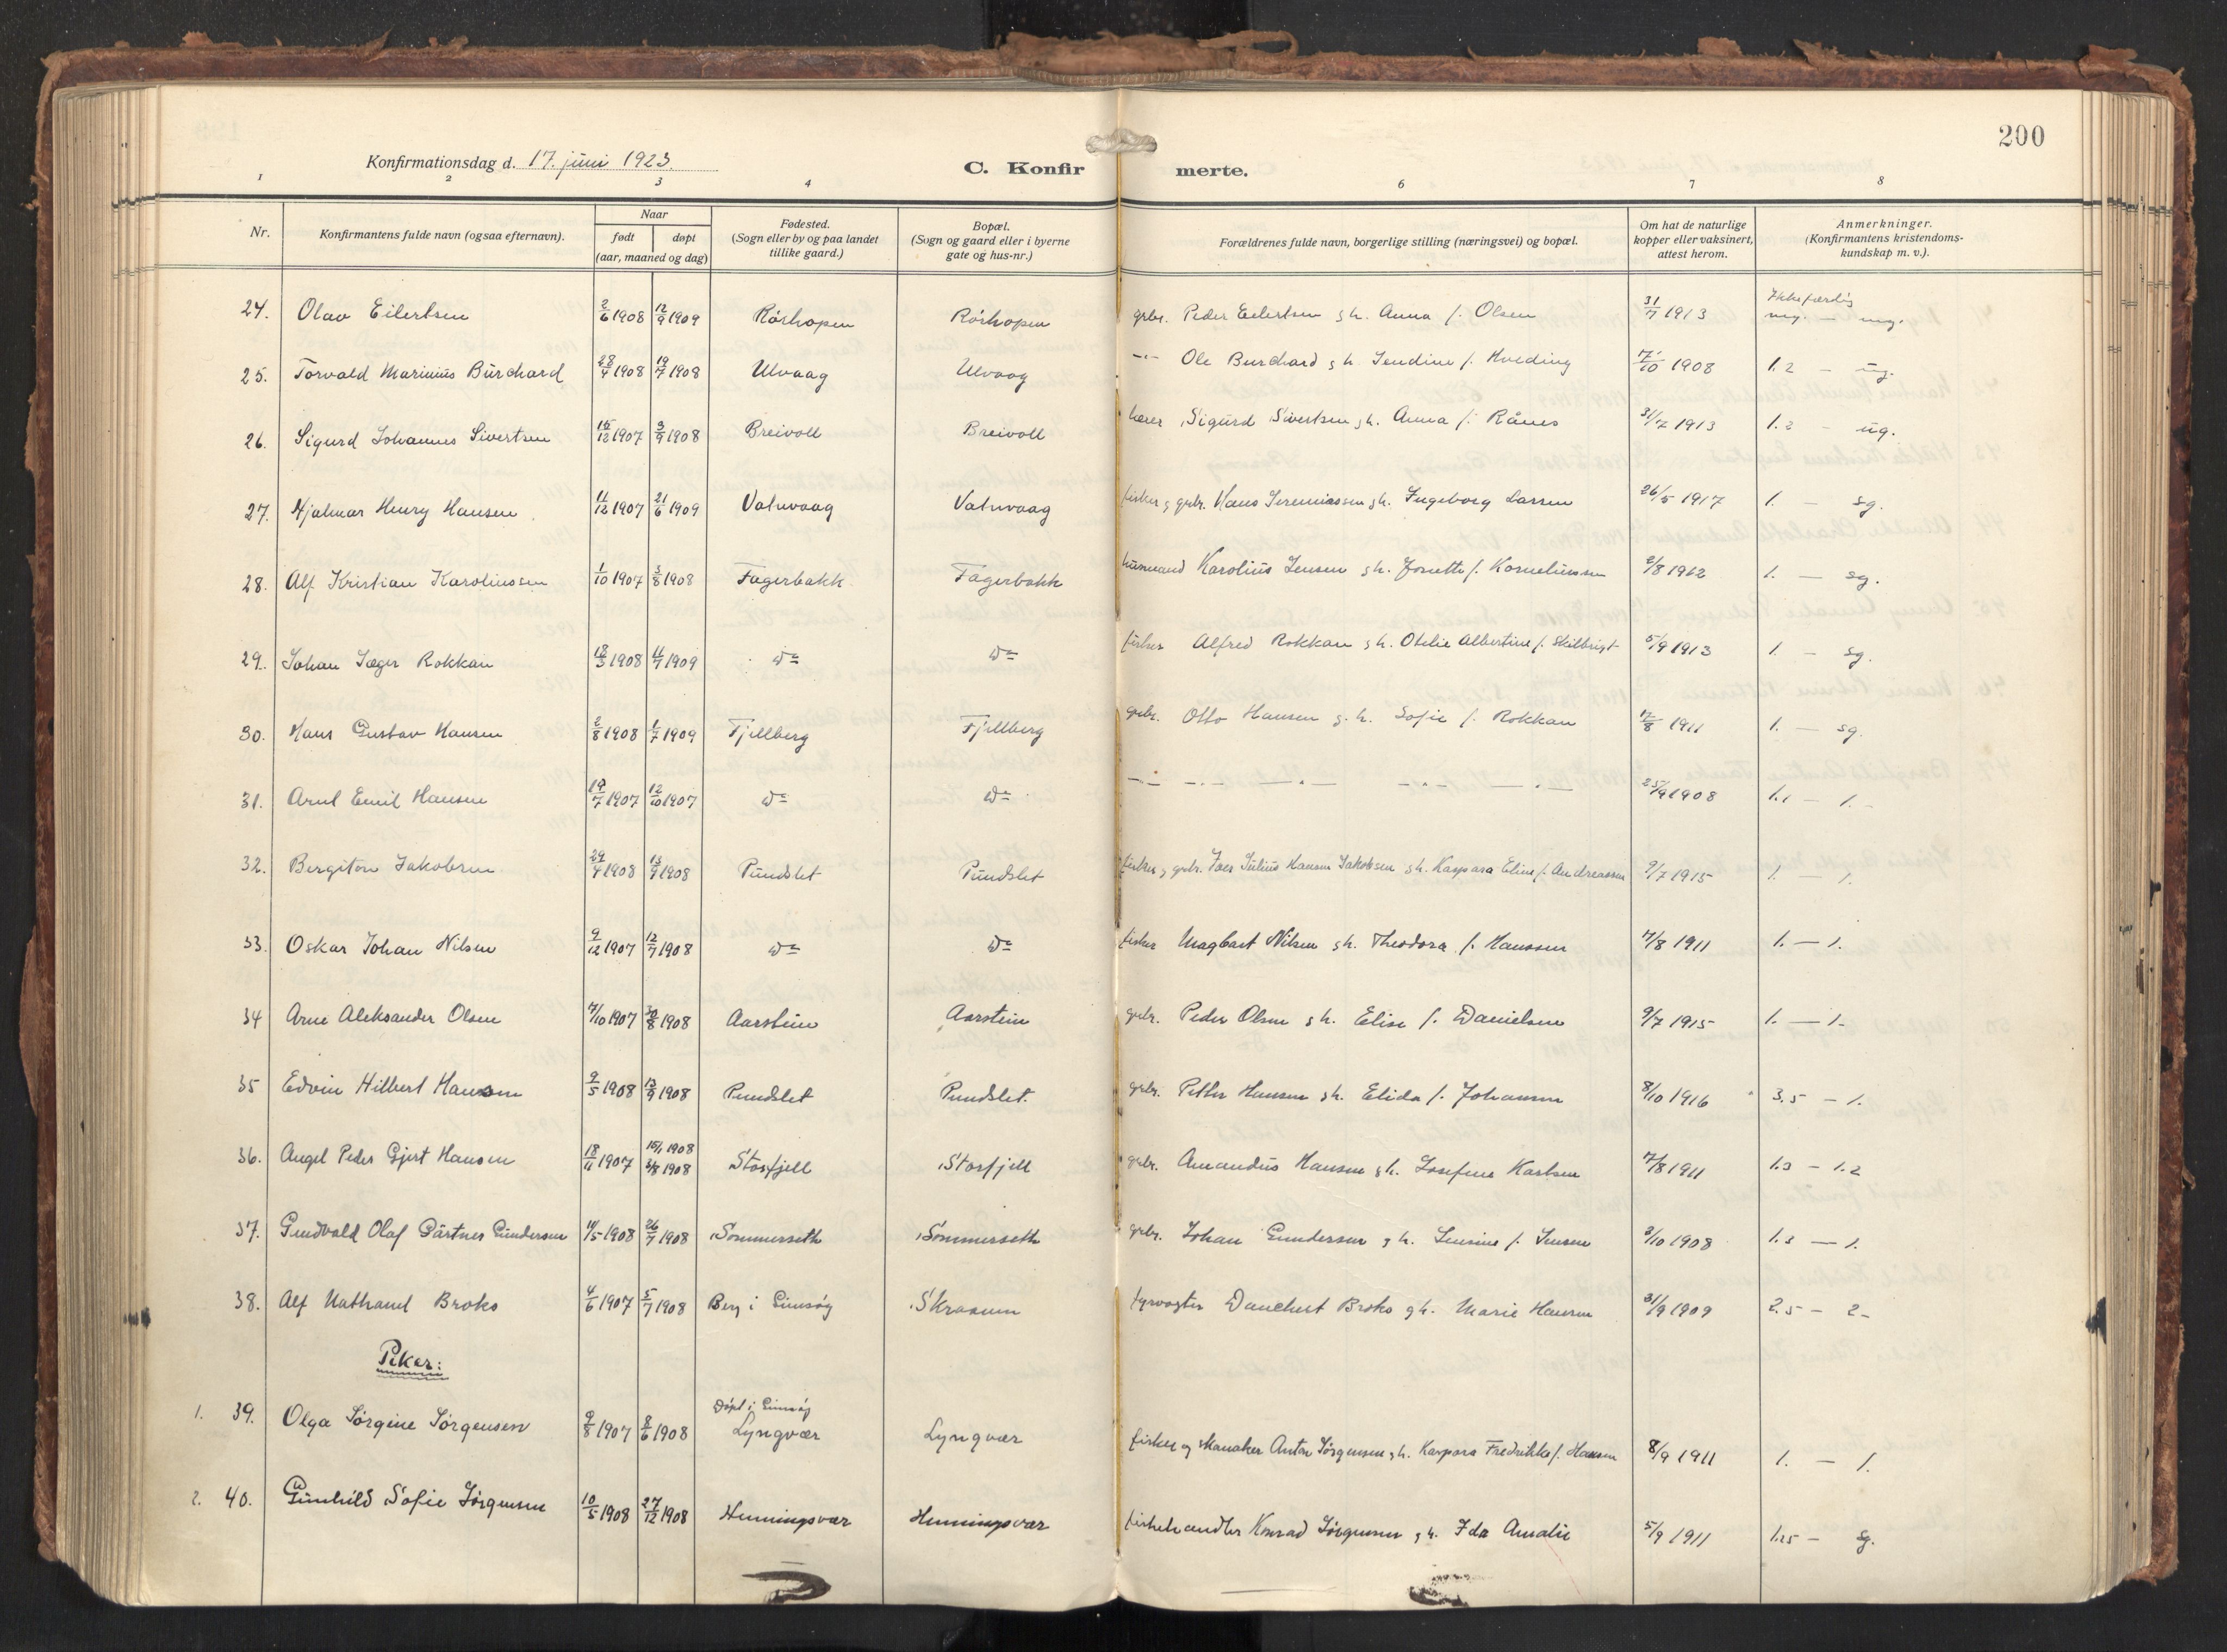 200
Konfirmationsdag d. 17. juni 1923.
C. Konfirmerte.
1 2 3 4 6 7 8
Nr.
Konfirmantens fulde navn (ogsaa efternavn).
Naar
født døpt
(aar, maaned og dag)
Fødested.
(Sogn eller by og paa landet
tillike gaard.)
Bopæl.
(Sogn og gaard eller i byerne
gate og hus-nr.)
Forældrenes fulde navn, borgerlige stilling (næringsvei) og bopæl.
Om hat de naturlige
kopper eller vaksinert,
attest herom.
Anmerkninger.
(Konfirmantens kristendoms-
kundskap m. v.).
24. Olav Eilertsen 2/6 1908 12/9 1909 Rørhopen Rørhopen grbr. Peder Eilertsen g h. Anna f. Olsen 31/7 1913 Ikke færdig mg. — mg.
25. Torvald Marinius Burchard 28/4 1908 19/7 1908 Ulvaag Ulvaag -"- Ole Burchard g h. Jendine f. Hveding 7/10 1908 1.2 – ug.
26. Sigurd Johannes Sivertsen 15/12 1907 3/9 1908 Breivoll Breivoll lærer Sigurd Sivertsen g h. Anna f. Rånes 31/7 1913 1.2 – ug.
27. Hjalmar Henry Hansen 11/12 1907 21/6 1909 Vatnvaag Vatnvaag fisker g grbr. Hans Jeremiassen g h. Ingeborg Larsen 26/5 1917 1. – sg.
28. Alf Kristian Karoliussen 1/10 1907 3/8 1908 Fagerbakk Fagerbakk husmand Karolius Jensen g h. Jonette f. Korneliussen 2/8 1912 1. — sg.
29. Johan Jæger Rokkan 18/3 1908 11/7 1909 do do fisker Alfred Rokkan g h. Otelie Albertine f. Skilbrigt 5/9 1913 1. – sg.
30. Hans Gustav Hansen 2/8 1908 1/7 1909 Fjellberg Fjellberg grbr. Otto Hansen g. h. Sofie f. Rokkan 17/8 1911 1. — sg.
31. Arnt Emil Hansen 19/7 1907 12/10 1907 do do -"- -"- -"- -"- -"- 25/9 1908 1.1 – 1. –
32. Bergiton Jakobsen 29/4 1908 13/9 1908 Pundslet Pundslet fisker g grbr. Joer Julius Hansen Jakobsen g h. Kaspara Eline f. Andreassen 9/7 1915 1. — 1.
33. Oskar Johan Nilsen 9/12 1907 12/7 1908 do do fisker Magbart Nilsen g h. Theodora f. Hanssen 7/8 1911 1. — 1.
34 Arne Aleksander Olsen 7/10 1907 30/8 1908 Aarstein Aarstein grbr. Peder Olsen g h. Elise f. Danielsen 9/7 1915 1. — 1-
35 Edvin Hilbert Hansen 9/5 1908 13/9 1908 Pundslet Pundslet. grbr. Petter Hansen g h. Elida f. Johansen 8/10 1916 3.5 – 1.
36. Angel Peder Gjert Hansen 18/11 1907 15/1 1908 2/8 1908 Storfjell Storfjell grbr. Amandus Hansen g h. Josefine Karlsen 7/8 1911 1.3 – 1.2
37. Gundvald Olaf Gärtner Gundersen 11/5 1908 26/7 1908 Sommerseth Sommerseth grbr. Johan Gundersen g h. Jensine f. Jensen 3/10 1908 1.3 — 1.
38. Alf Nathanel Broks 4/6 1907 5/7 1908 Berg i Gimsøy Skraaven fyrvogter Danchert Broks g h. Marie Hansen 31/9 1909 2.5 – 2-
Piker:
1. 39. Olga Jørgine Jørgensen 9/8 1907 8/6 1908 Døpt i Gimsøy Lyngvær Lyngvær fisker og skomaker Anton Jørgensen g h. Kaspara Fredrikke f. Hansen 8/9 1911 1. – 1.
2. 40. Gunhild Sofie Jørgensen 10/5 1908 27/12 1908 Henningsvær Henningsvær fiskehandler Konrad Jørgensen g h. Ida Amalie 5/9 1911 1.25 – sg.